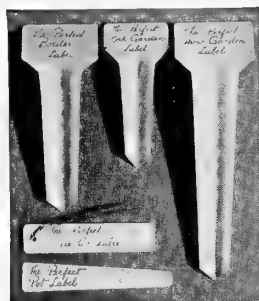 The Perfect
Border
Label
The Perfect
Garden
Label
The Perfect
Show Garden
Label
The Perfect
The Perfect
Pot Label